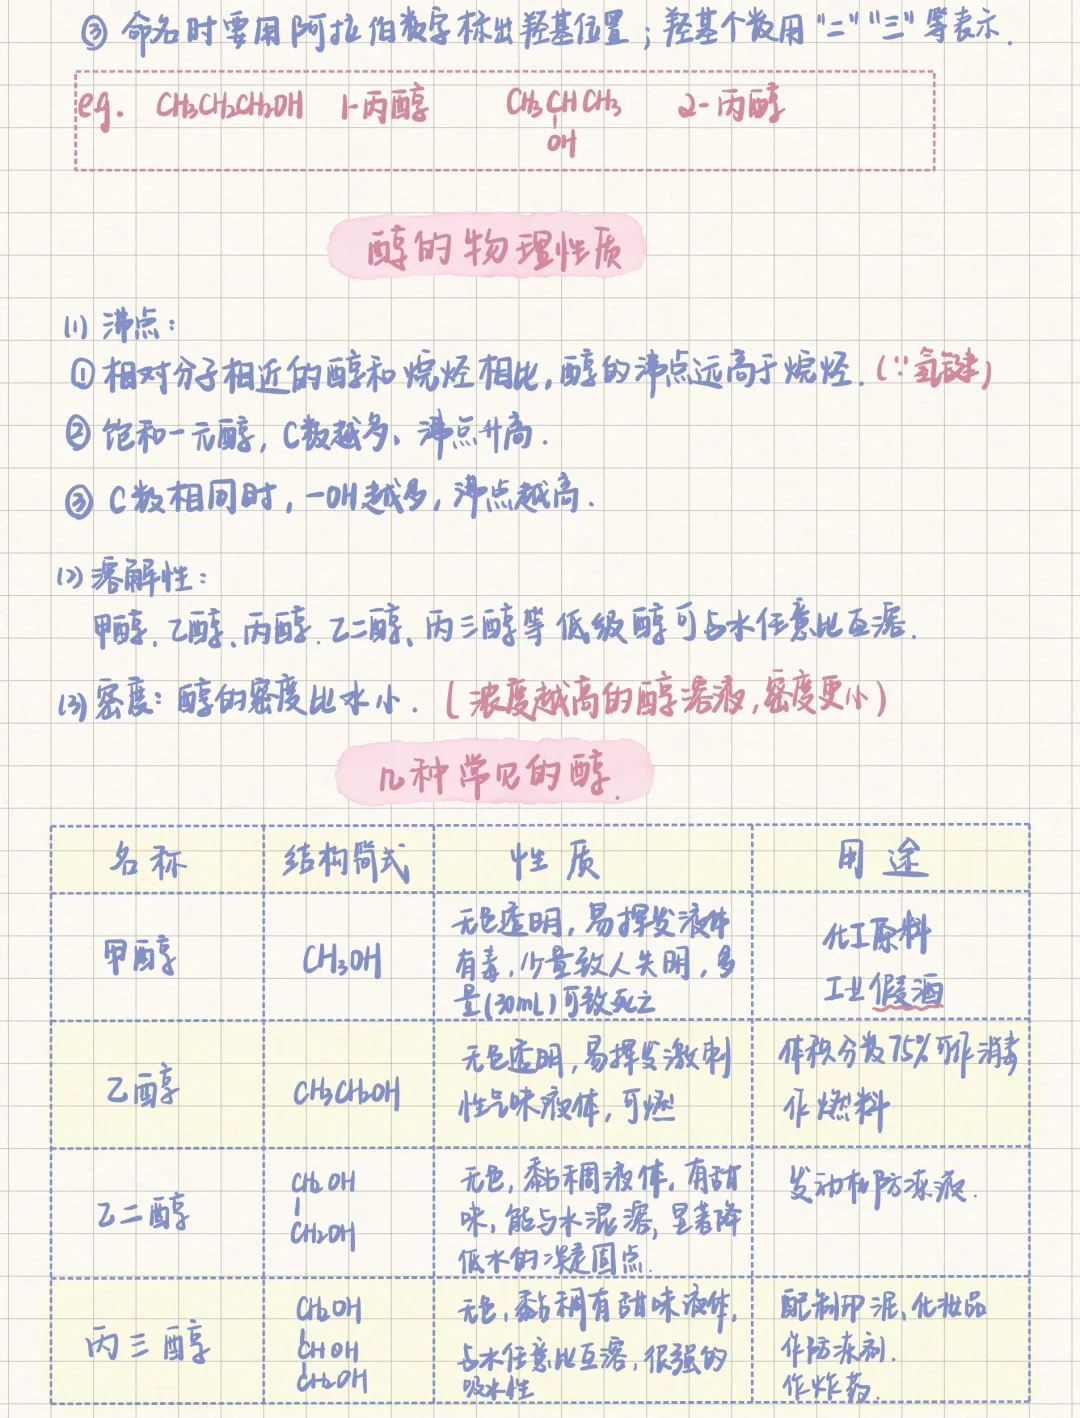 ③ 命名时要用阿拉伯数字标出羟基位置；羟基个数用"二""三"等表示.
eg. CH₃CH₂CH₂OH 1-丙醇 CH₃CHCH₃ 2-丙醇
OH
醇的物理性质
(1) 沸点：
① 相对分子相近的醇和烷烃相比，醇的沸点远高于烷烃.(∵氢键)
② 饱和一元醇，C数越多、沸点升高.
③ C数相同时，-OH越多，沸点越高.
(2) 溶解性：
甲醇、乙醇、丙醇、乙二醇、丙三醇等低级醇可与水任意比互溶.
(3) 密度：醇的密度比水小.(浓度越高的醇溶液，密度更小)
几种常见的醇.
名称 结构简式 性质 用途
甲醇 CH₃OH
无色透明，易挥发液体
有毒，少量致人失明，多
量(30mL)可致死亡
化工原料
工业假酒
乙醇 CH₃CH₂OH
无色透明，易挥发激刺
性气味液体，可燃
体积分数75%可作消毒
作燃料
乙二醇
CH₂OH
CH₂OH
无色，黏稠液体，有甜
味，能与水混溶，显著降
低水的凝固点.
发动机防冻液.
丙三醇
CH₂OH
CHOH
CH₂OH
无色，黏稠有甜味液体，
与水任意比互溶，很强的
吸水性
配制印泥、化妆品
作防冻剂.
作炸药.